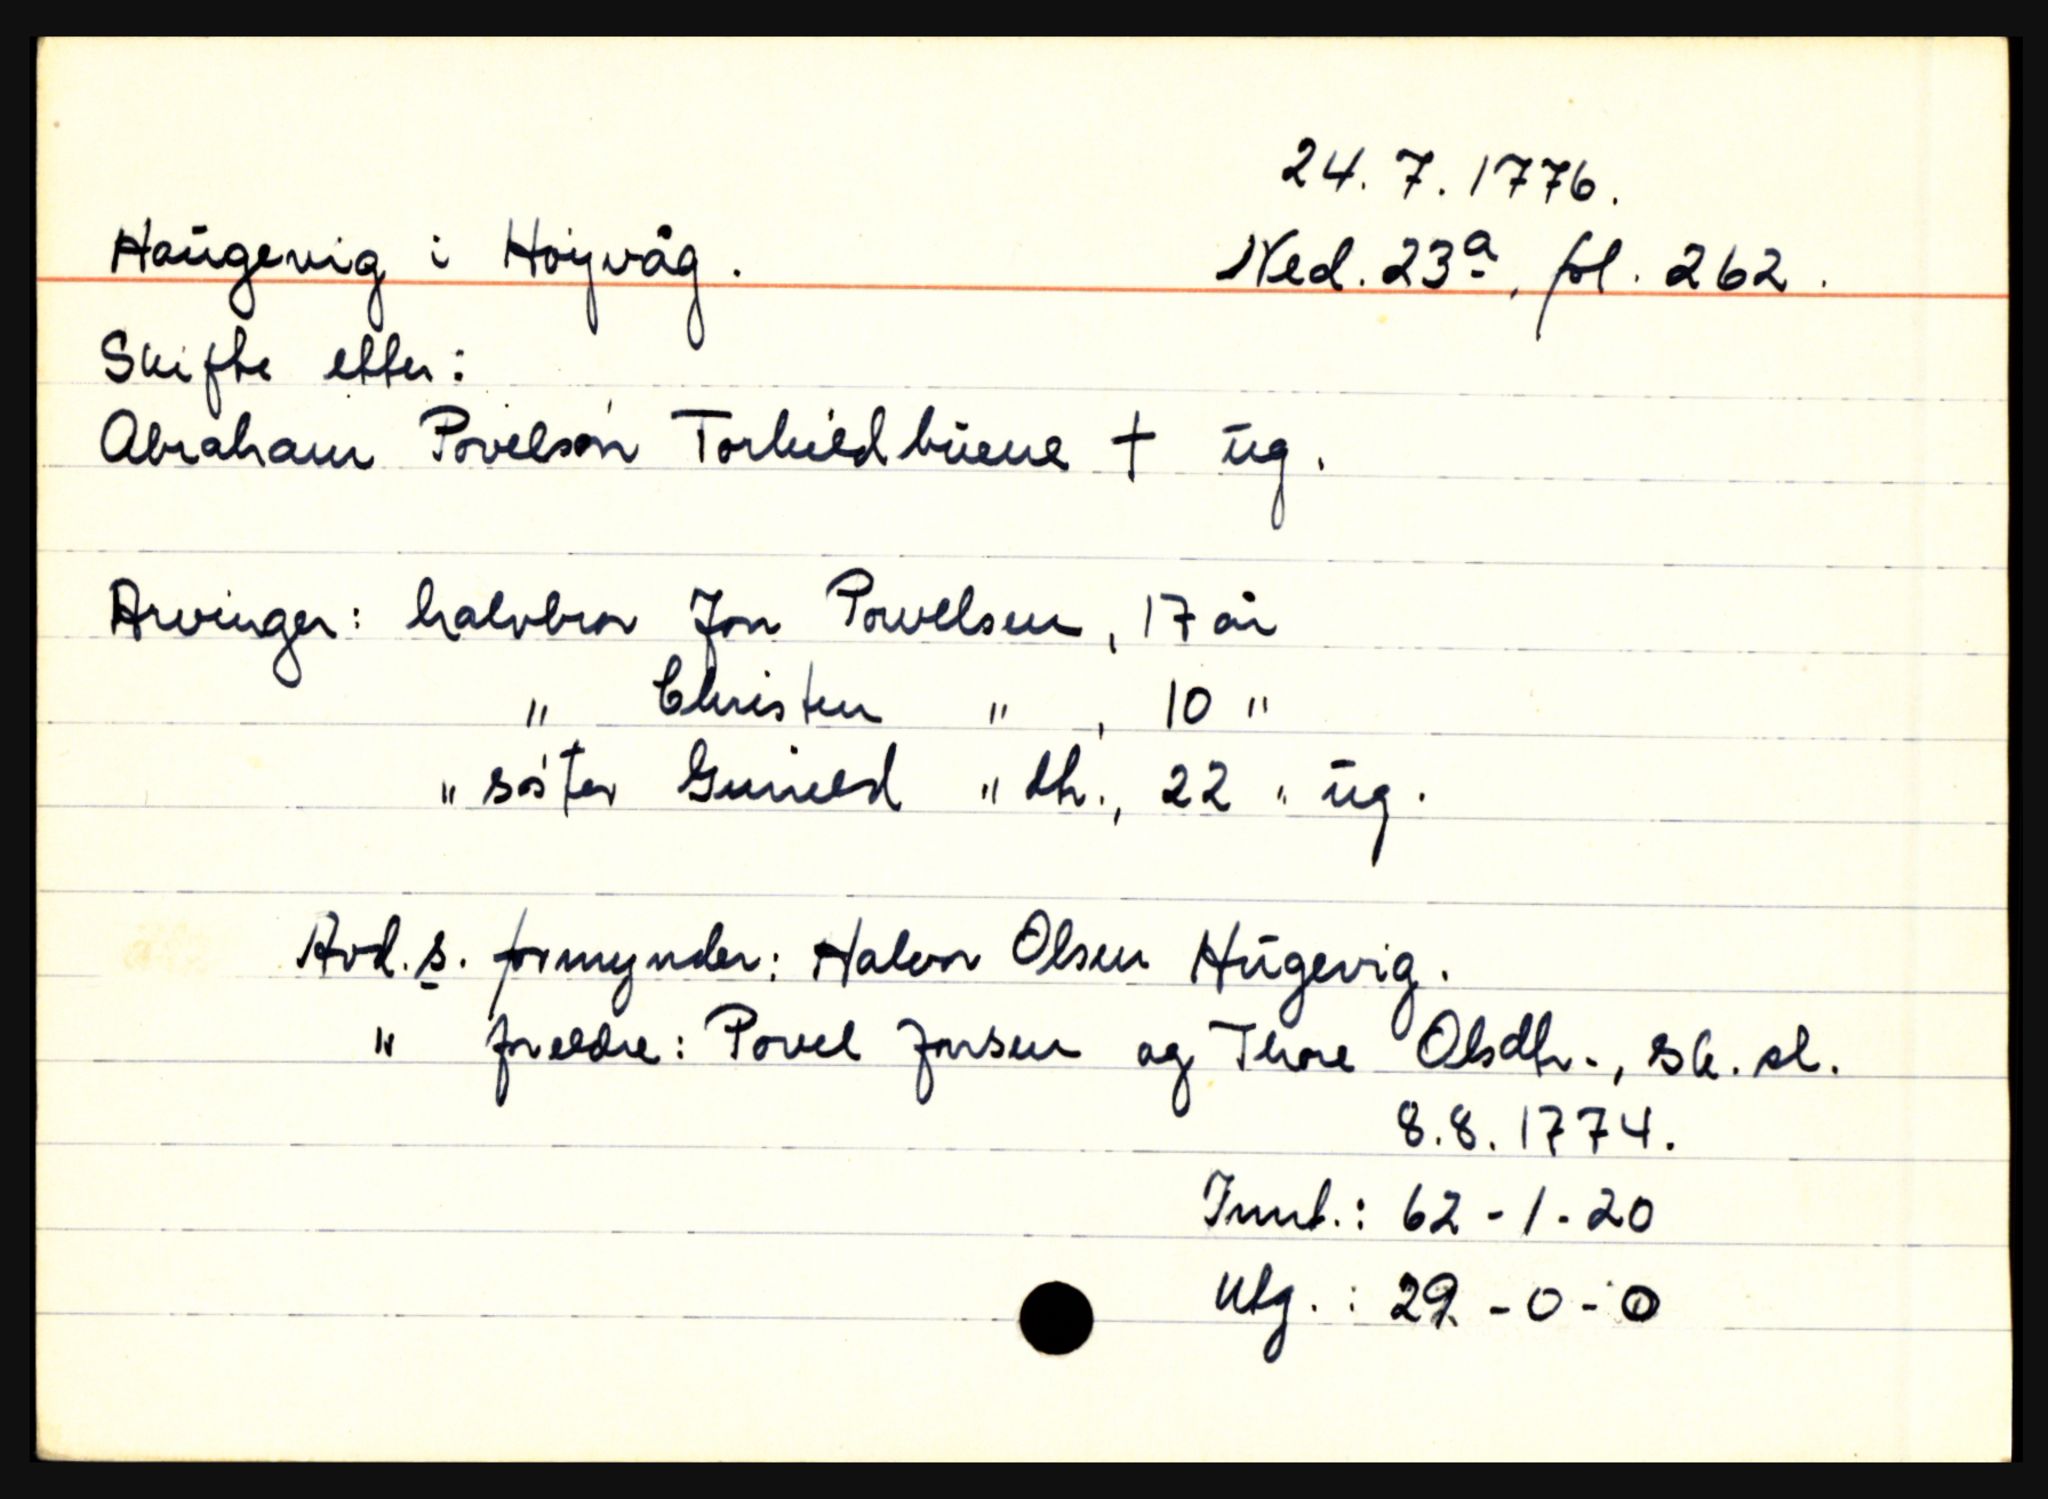 24.7.1776.
Haugevig i Høyvåg. Ned. 23a, fol. 262.
Skifte etter:
Abraham Povelsøn Torkildbuene † ug.
Arvinger: halvbror Jon Povelsen, 17 år
" Christen " , 10 "
" søster Gunild " dtr., 22 " ug.
Avd.s. formynder: Halvor Olsen Hugevig.
" foreldre: Povel Jonsen og Thore Olsdtr., sk. sl.
8.8.1774.
Innt.: 62-1-20
Utg.: 29-0-0